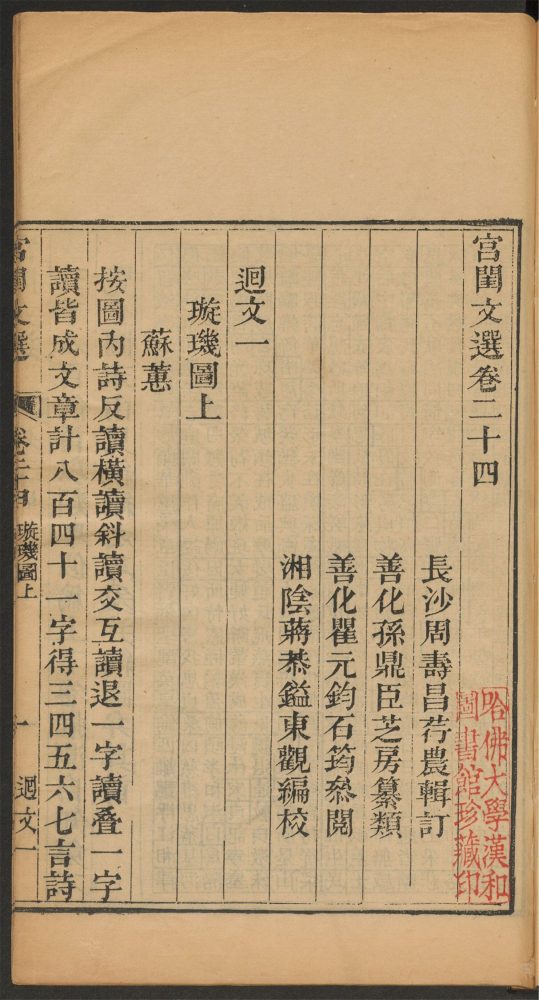 宮閨文選卷二十四
長沙周壽昌荇農輯訂
善化孫鼎臣芝房纂類
善化瞿元鈞石筠叅閱
湘陰蔣恭鎰東觀編校
迴文一
璇璣圖上
蘇蕙
按圖內詩反讀橫讀斜讀交互讀退一字讀叠一字
讀皆成文章計八百四十一字得三四五六七言詩
宮閨文選
卷二十四
璇璣圖上
一
迴文一
哈佛大學漢和
圖書館珍藏印